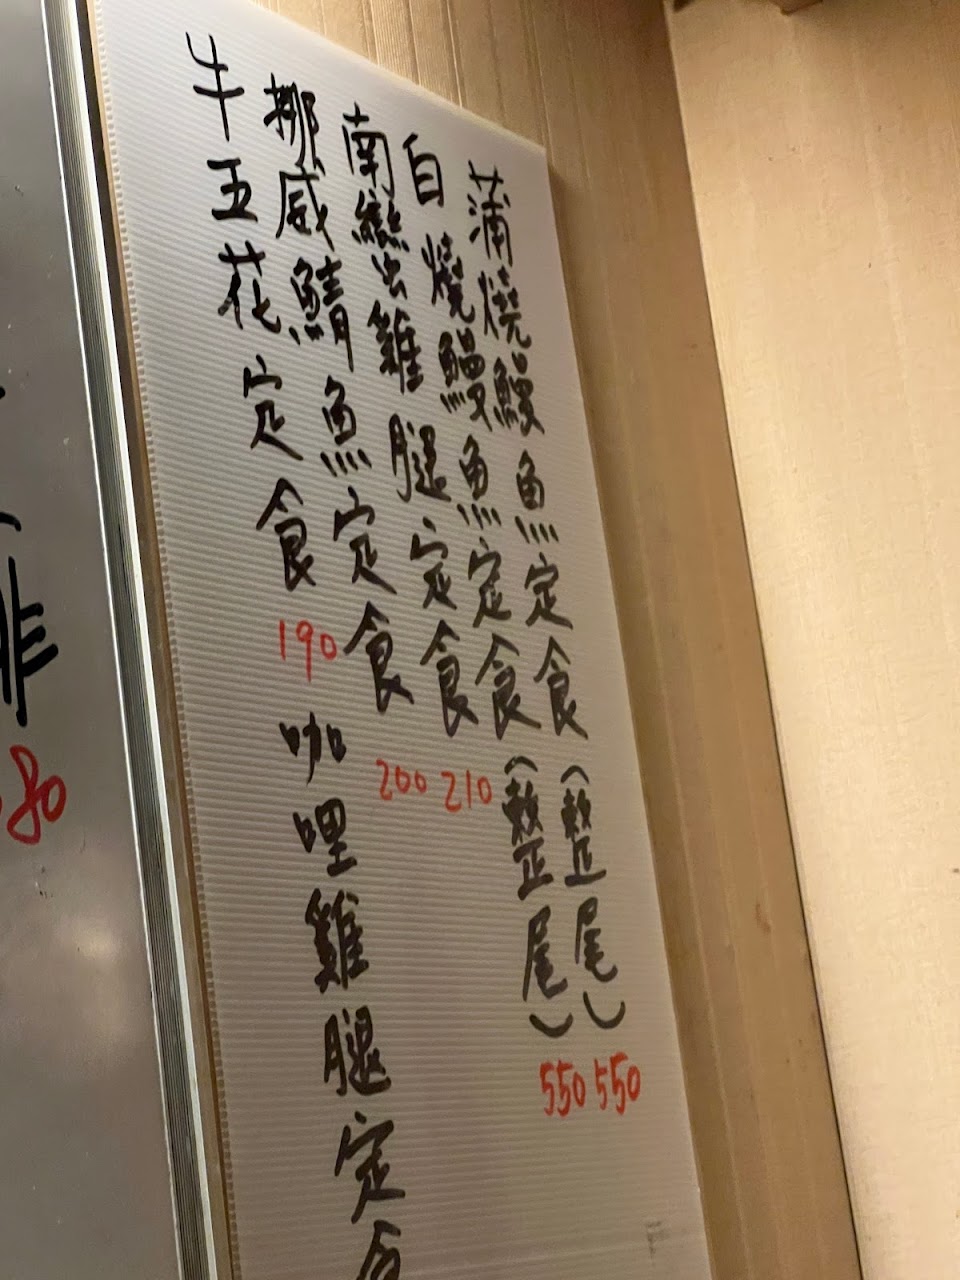 蒲燒鰻魚定食(整尾)550
白燒鰻魚定食(整尾)550
南蠻雞腿定食210
挪威鯖魚定食200
牛五花定食190
咖哩雞腿定食
排
80